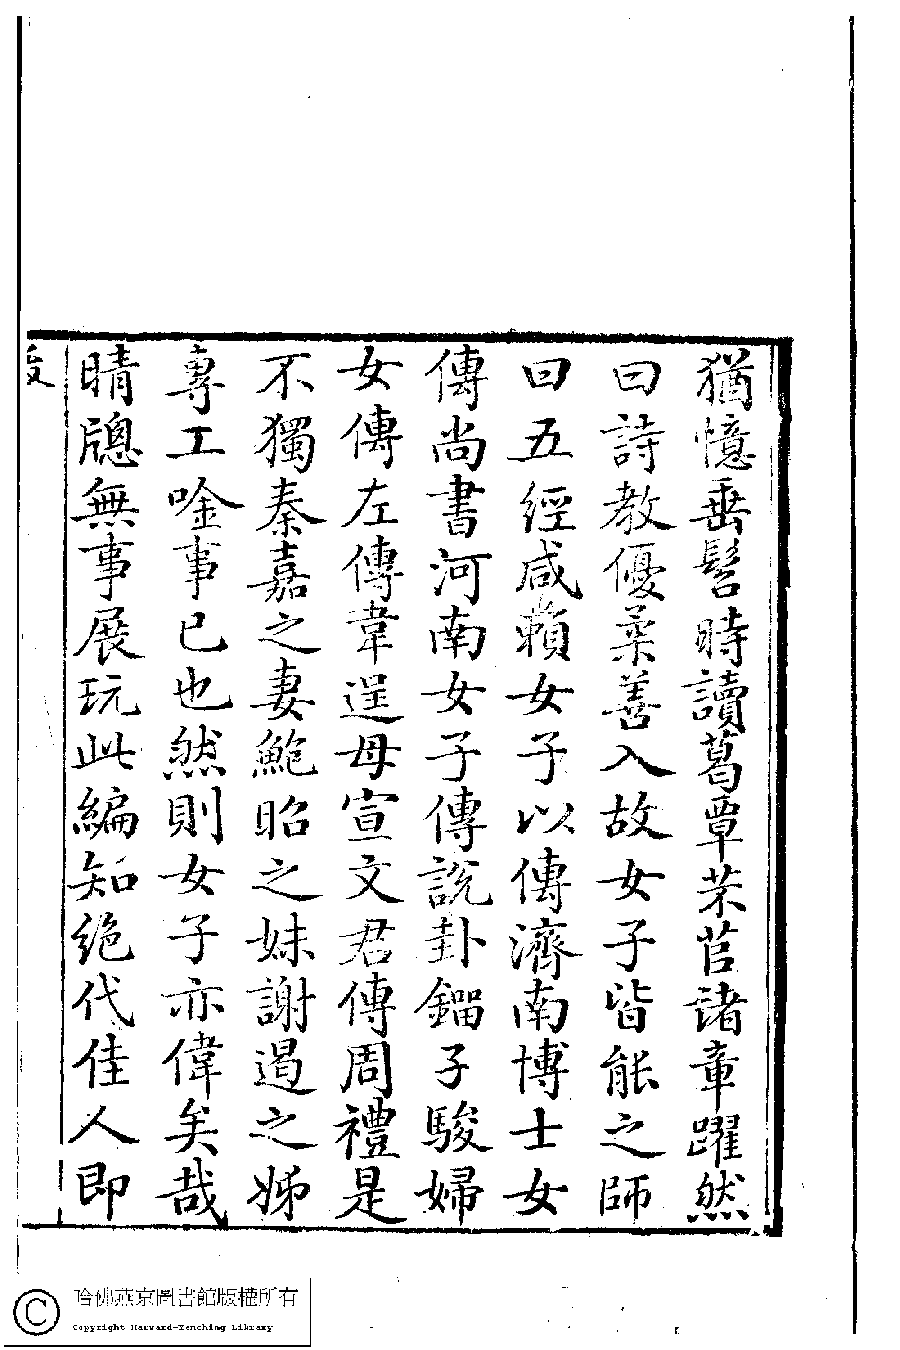 猶憶垂髫時讀葛覃芣苢諸章躍然
曰詩教優柔善入故女子皆能之師
曰五經咸賴女子以傳濟南博士女
傳尚書河南女子傳說卦鎦子駿婦
女傳左傳韋逞母宣文君傳周禮是
不獨秦嘉之妻鮑昭之妹謝遏之姊
專工唫事已也然則女子亦偉矣哉
晴牕無事展玩此編知絕代佳人即
哈佛燕京圖書館版權所有
Copyright Harvard-Yenching Library